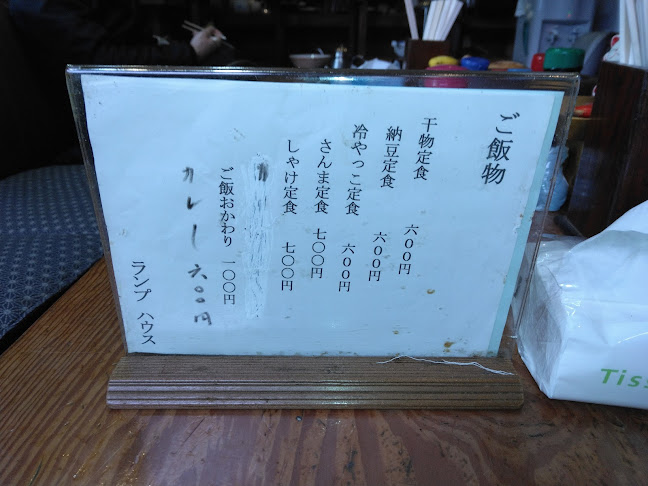 ご飯物
干物定食 六００円
納豆定食 六００円
冷やっこ定食 六００円
さんま定食 七〇〇円
しゃけ定食 七〇〇円
ご飯おかわり 一〇〇円
カレー 六００円
ランプ ハウス
Tiss